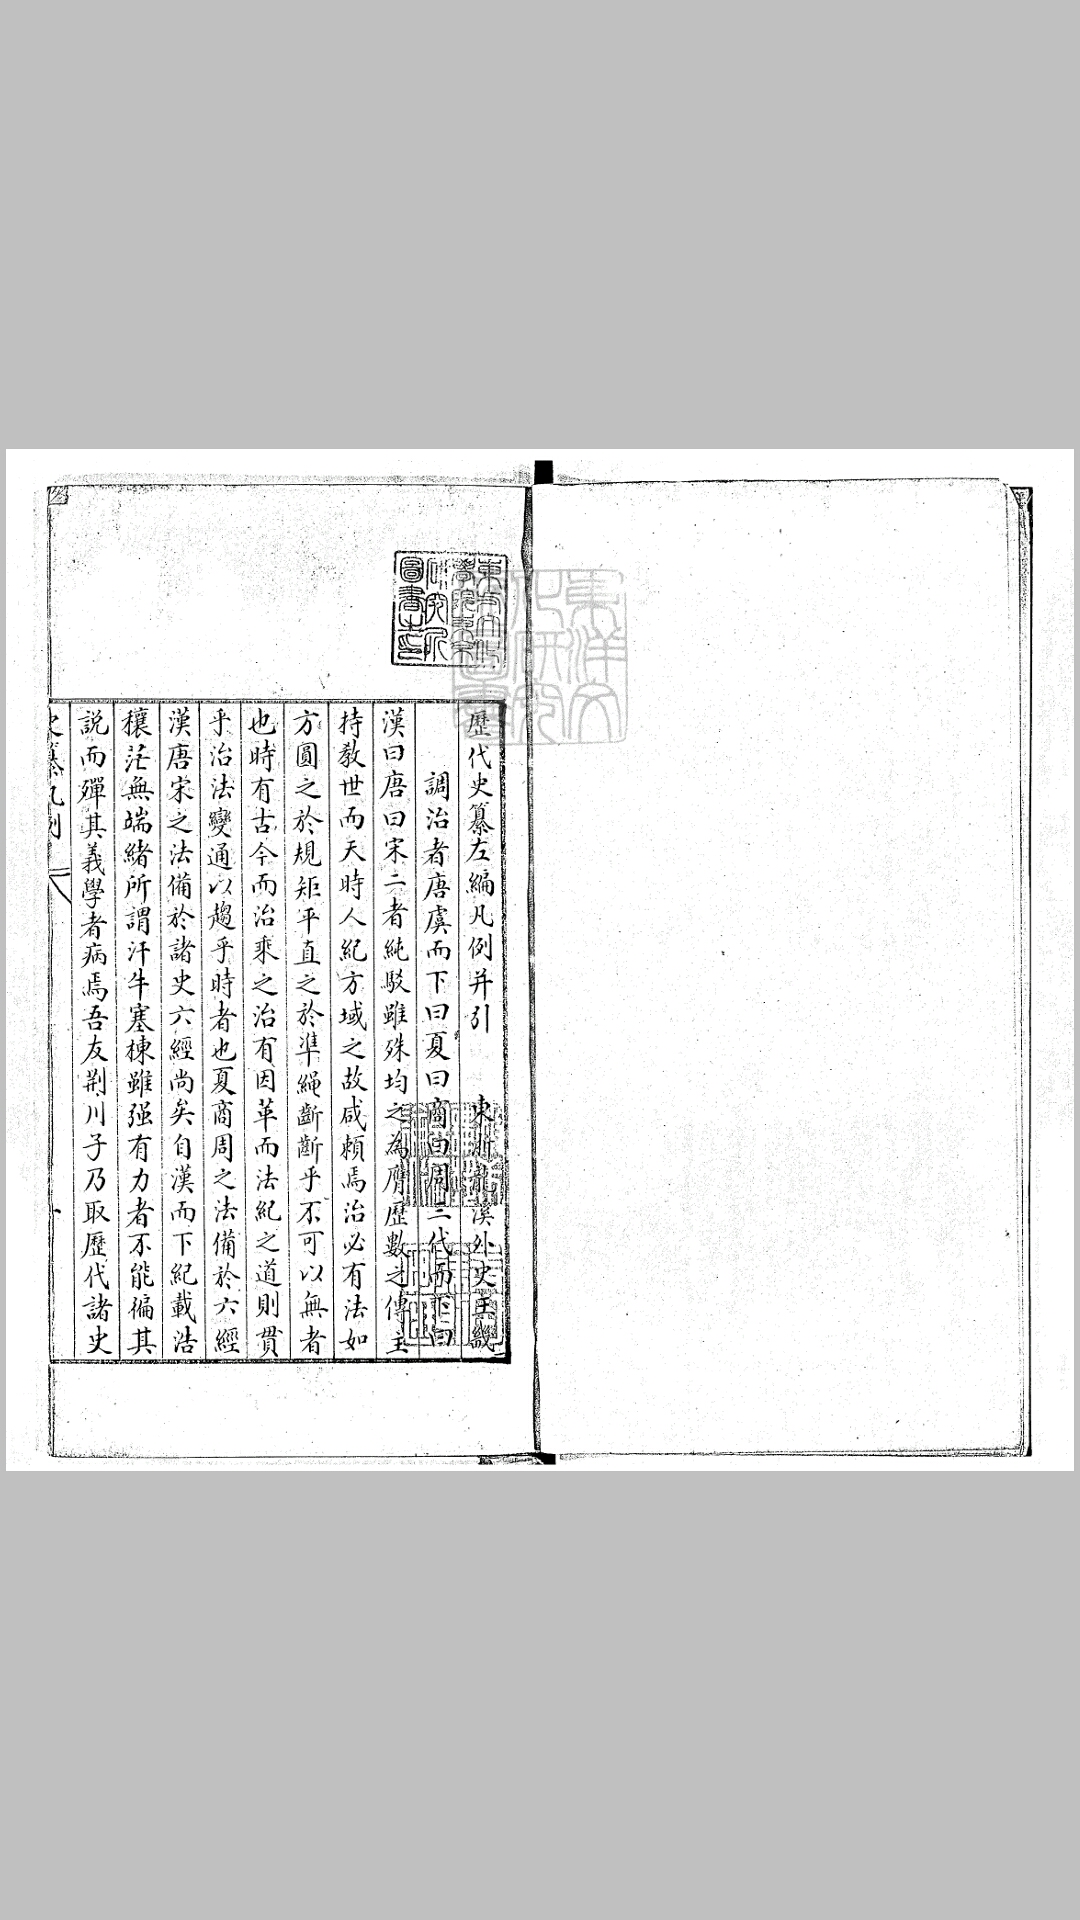 歷代史纂左編凡例并引　東浙龍溪外史王畿
調治者唐虞而下曰夏曰商曰周三代而下曰
漢曰唐曰宋二者純駁雖殊均之為膺歷數之傳主
持教世而天時人紀方域之故咸賴焉治必有法如
方圓之於規矩平直之於準繩斷斷乎不可以無者
也時有古今而治乘之治有因革而法紀之道則貫
乎治法變通以趨乎時者也夏商周之法備於六經
漢唐宋之法備於諸史六經尚矣自漢而下紀載浩
穰茫無端緒所謂汗牛塞棟雖强有力者不能徧其
説而殫其義學者病焉吾友荆川子乃取歷代諸史
史纂凡例
東方文化
學院京都
研究所
圖書之印
東洋文
化研究